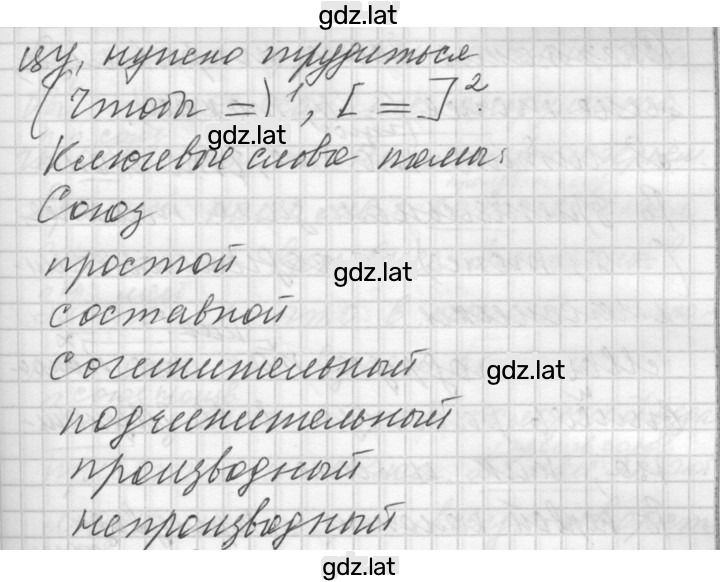 gdz.lat
цу, нужно трудиться
(Чтобы =)¹, [=]².
gdz.lat
Ключевые слова темы:
Союз
простой
gdz.lat
составной
сочинительный
gdz.lat
подчинительный
производный
непроизводный
gdz.lat